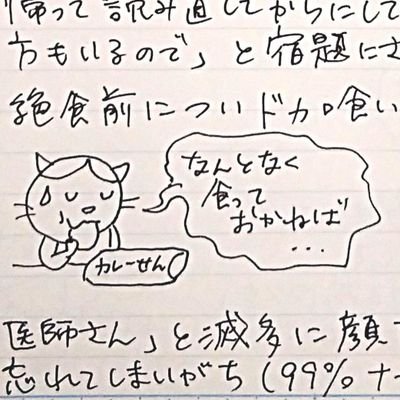 帰って読み直してからにして
方もいるので」と宿題にさ
絶食前についドカ喰い
なんとなく
食って
おかねば
...
カレーせん
医師さん」と滅多に顔
忘れてしまいがち(99%